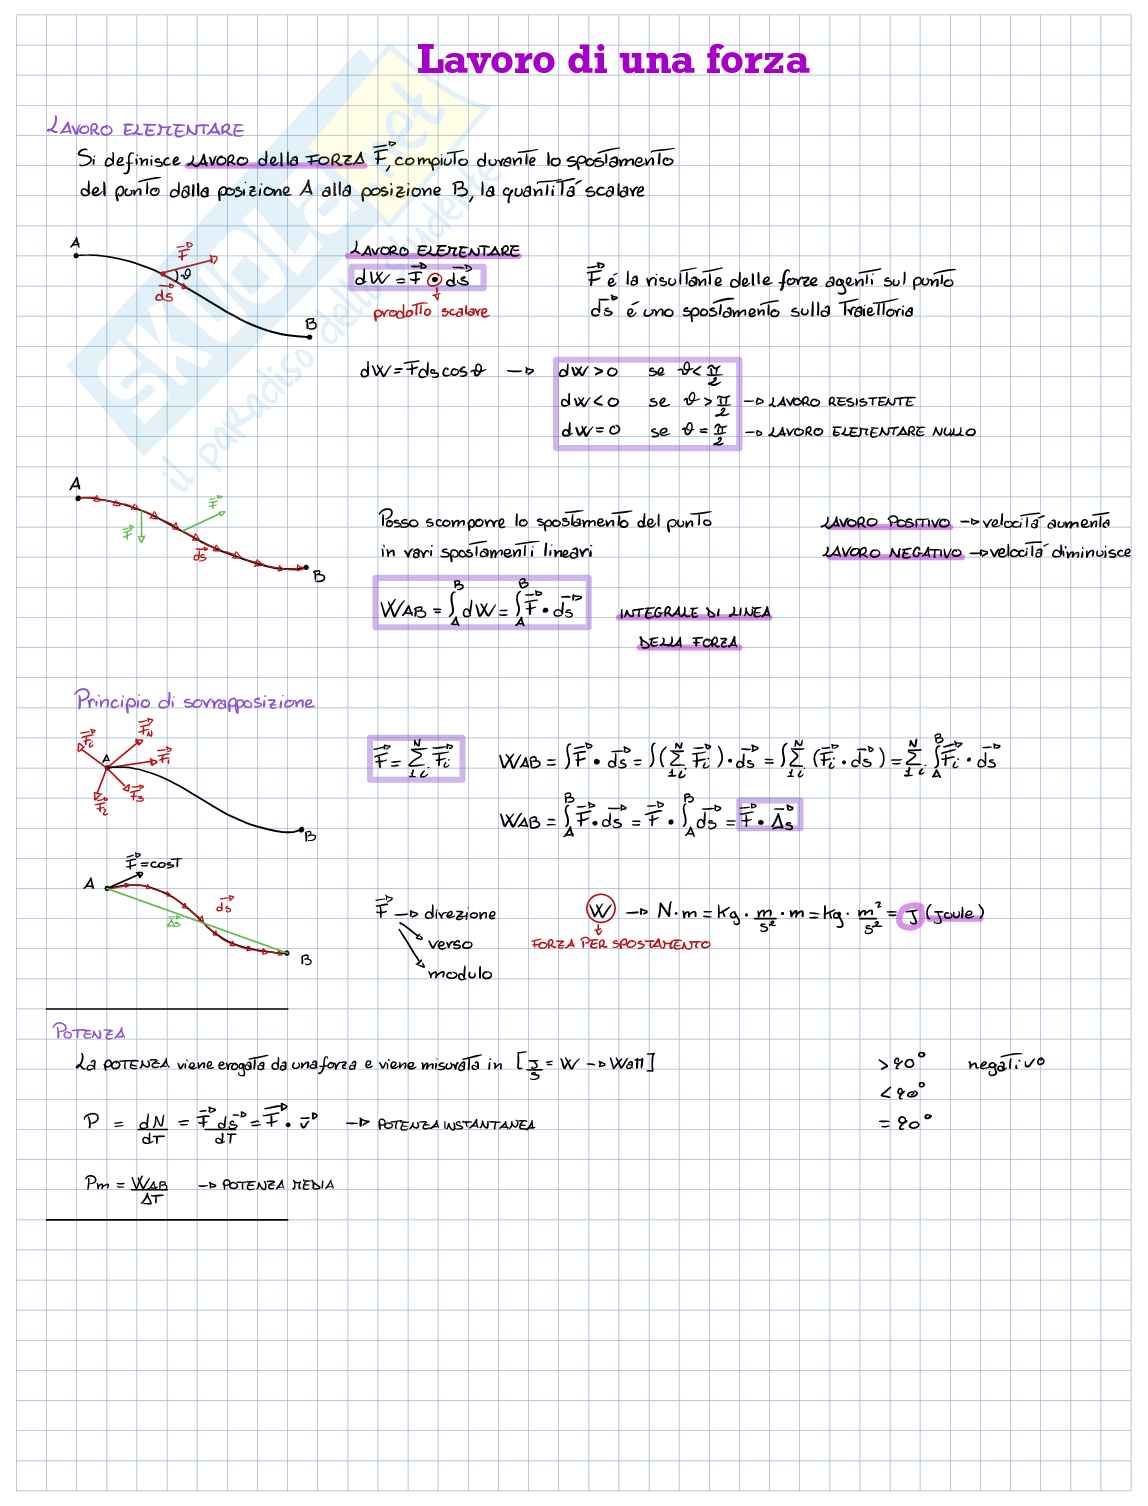 Lavoro di una forza
LAVORO ELEMENTARE
Si definisce LAVORO della FORZA F⃗, compiuto durante lo spostamento
del punto dalla posizione A alla posizione B, la quantitá scalare
A
F⃗
ϑ
ds⃗
B
LAVORO ELEMENTARE
dW = F⃗ • ds⃗
prodotto scalare
F⃗ é la risultante delle forze agenti sul punto
ds⃗ é uno spostamento sulla traiettoria
dW = F ds cos ϑ → dW > 0 se ϑ < π/2
dW < 0 se ϑ > π/2 → LAVORO RESISTENTE
dW = 0 se ϑ = π/2 → LAVORO ELEMENTARE NULLO
A
F⃗
F⃗
ds⃗
B
Posso scomporre lo spostamento del punto
in vari spostamenti lineari
LAVORO POSITIVO → velocitá aumenta
LAVORO NEGATIVO → velocitá diminuisce
WAB = ∫_A^B dW = ∫_A^B F⃗ • ds⃗
INTEGRALE DI LINEA
DELLA FORZA
Principio di sovrapposizione
F⃗i
F⃗N
F⃗1
A
F⃗2
F⃗3
B
F⃗ = ∑_{1 i}^N F⃗i
WAB = ∫F⃗ • ds⃗ = ∫(∑_{1 i}^N F⃗i) • ds⃗ = ∫∑_{1 i}^N (F⃗i • ds⃗) = ∑_{1 i}^N ∫_A^B F⃗i • ds⃗
WAB = ∫_A^B F⃗ • ds⃗ = F⃗ • ∫_A^B ds⃗ = F⃗ • Δ⃗s
F⃗ = cost
A
ds⃗
Δ⃗s
B
F⃗ → direzione
verso
modulo
W → N·m = kg · m/s² · m = kg · m²/s² = J (Joule)
FORZA PER SPOSTAMENTO
POTENZA
La POTENZA viene erogata da una forza e viene misurata in [J/s = W → Watt]
>90° negativo
<90°
=90°
P = dN/dT = F⃗ ds⃗/dT = F⃗ • v⃗ → POTENZA INSTANTANEA
Pm = WAB/ΔT → POTENZA MEDIA
SKUOLA.net
il paradiso dello studente